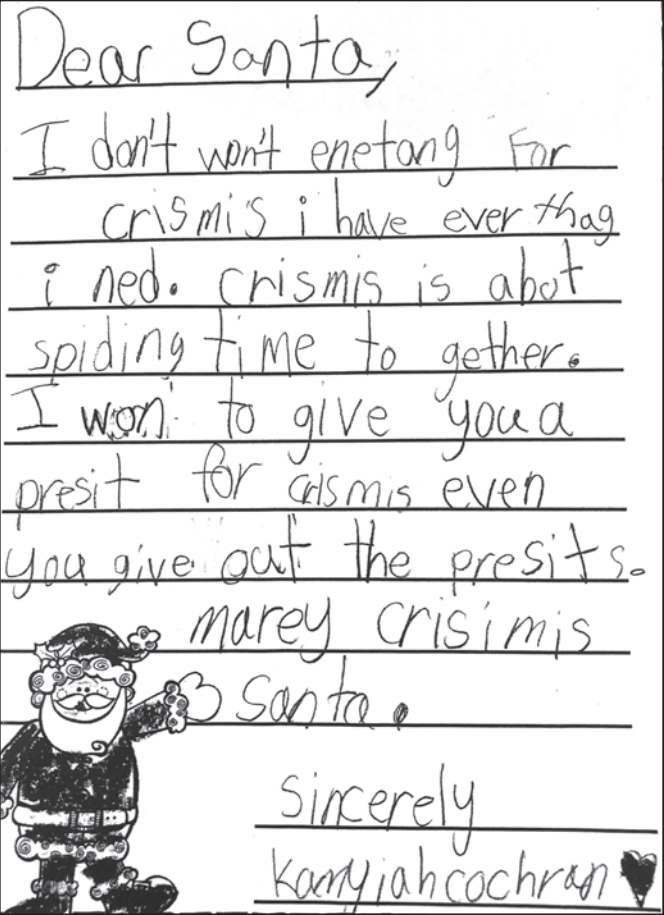 Dear Santa,
I don't won't enetang For
crismis i have ever thag
i ned. crismis is abot
spiding time to gether.
I won to give you a
presit for crismis even
you give out the presits.
marey crisimis
Santa.
Sincerely
kamyjahcochran